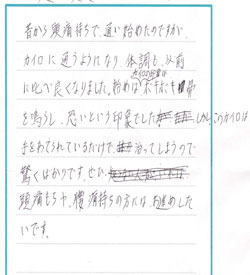 昔から頭痛持ちで、通い始めたのですが、
カイロに通うようになり、体調も、以前
に比べ良くなりました。始めは、カイロは骨
を鳴らし、恐いという印象でした しかしこのカイロは
手をあてられているだけで、治ってしまうので
驚くばかりです。ぜひ、
頭痛もちや、腰痛持ちの方には、お進めした
いです。